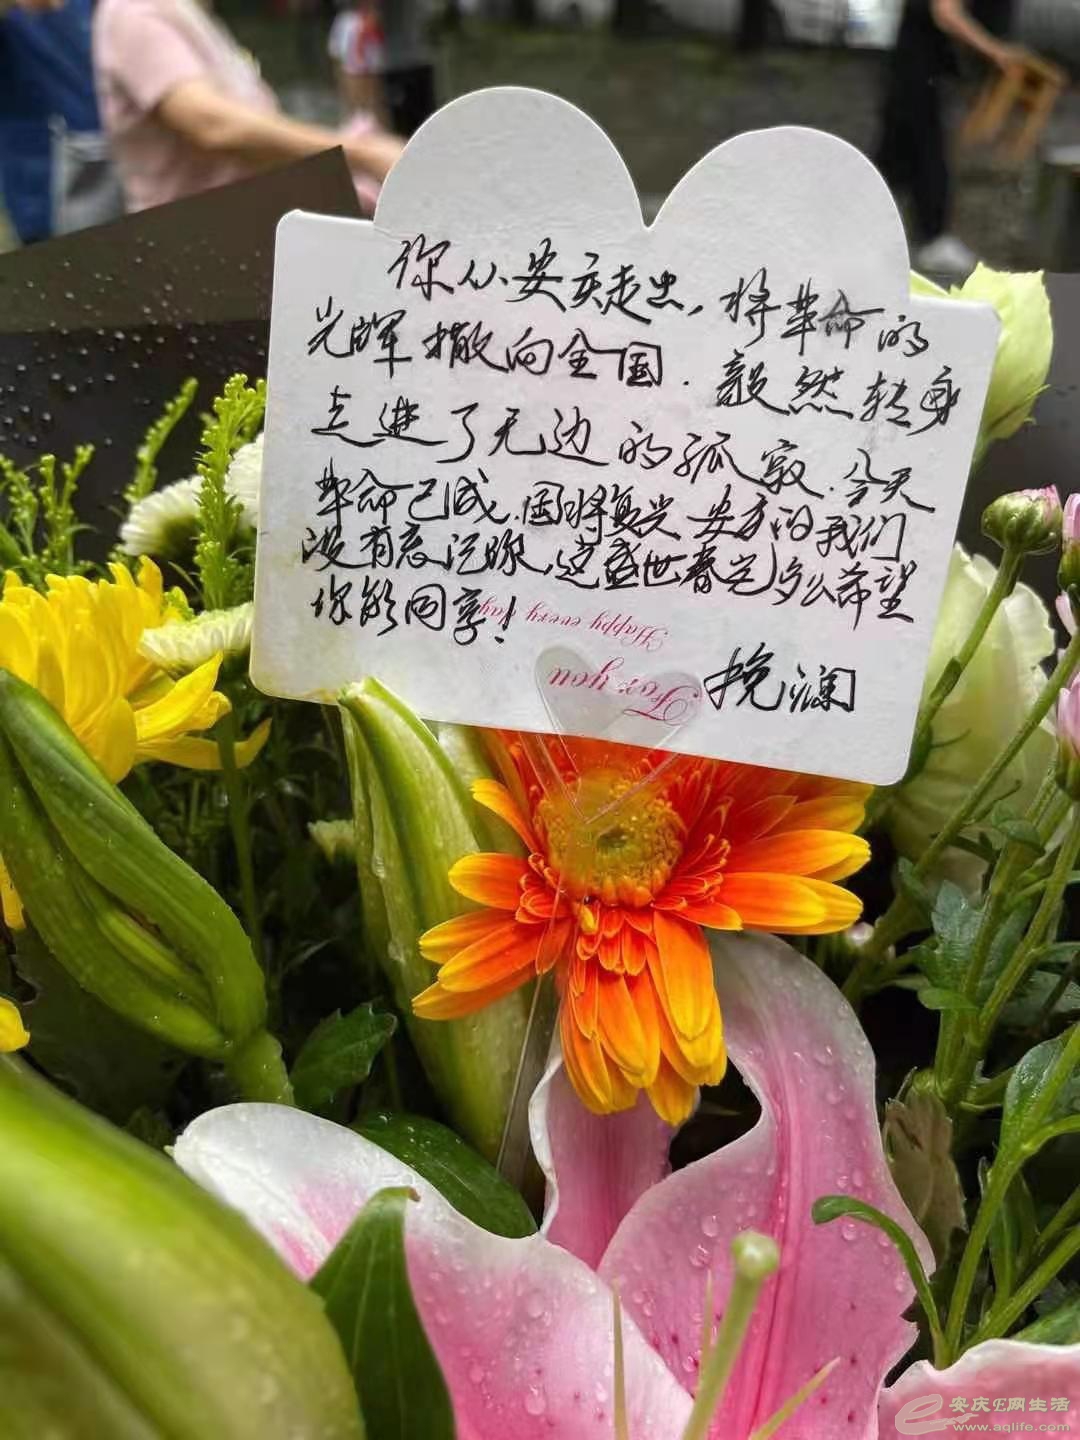 你从安庆走出，将革命的
光辉撒向全国．毅然转身
走进了无边的孤寂．今天
革命已成．国将复兴 安方的我们
没有忘记您，这盛世春光，多么希望
你能同享！
Happy every day
For you
挽澜
安庆E网生活
www.aqlife.com